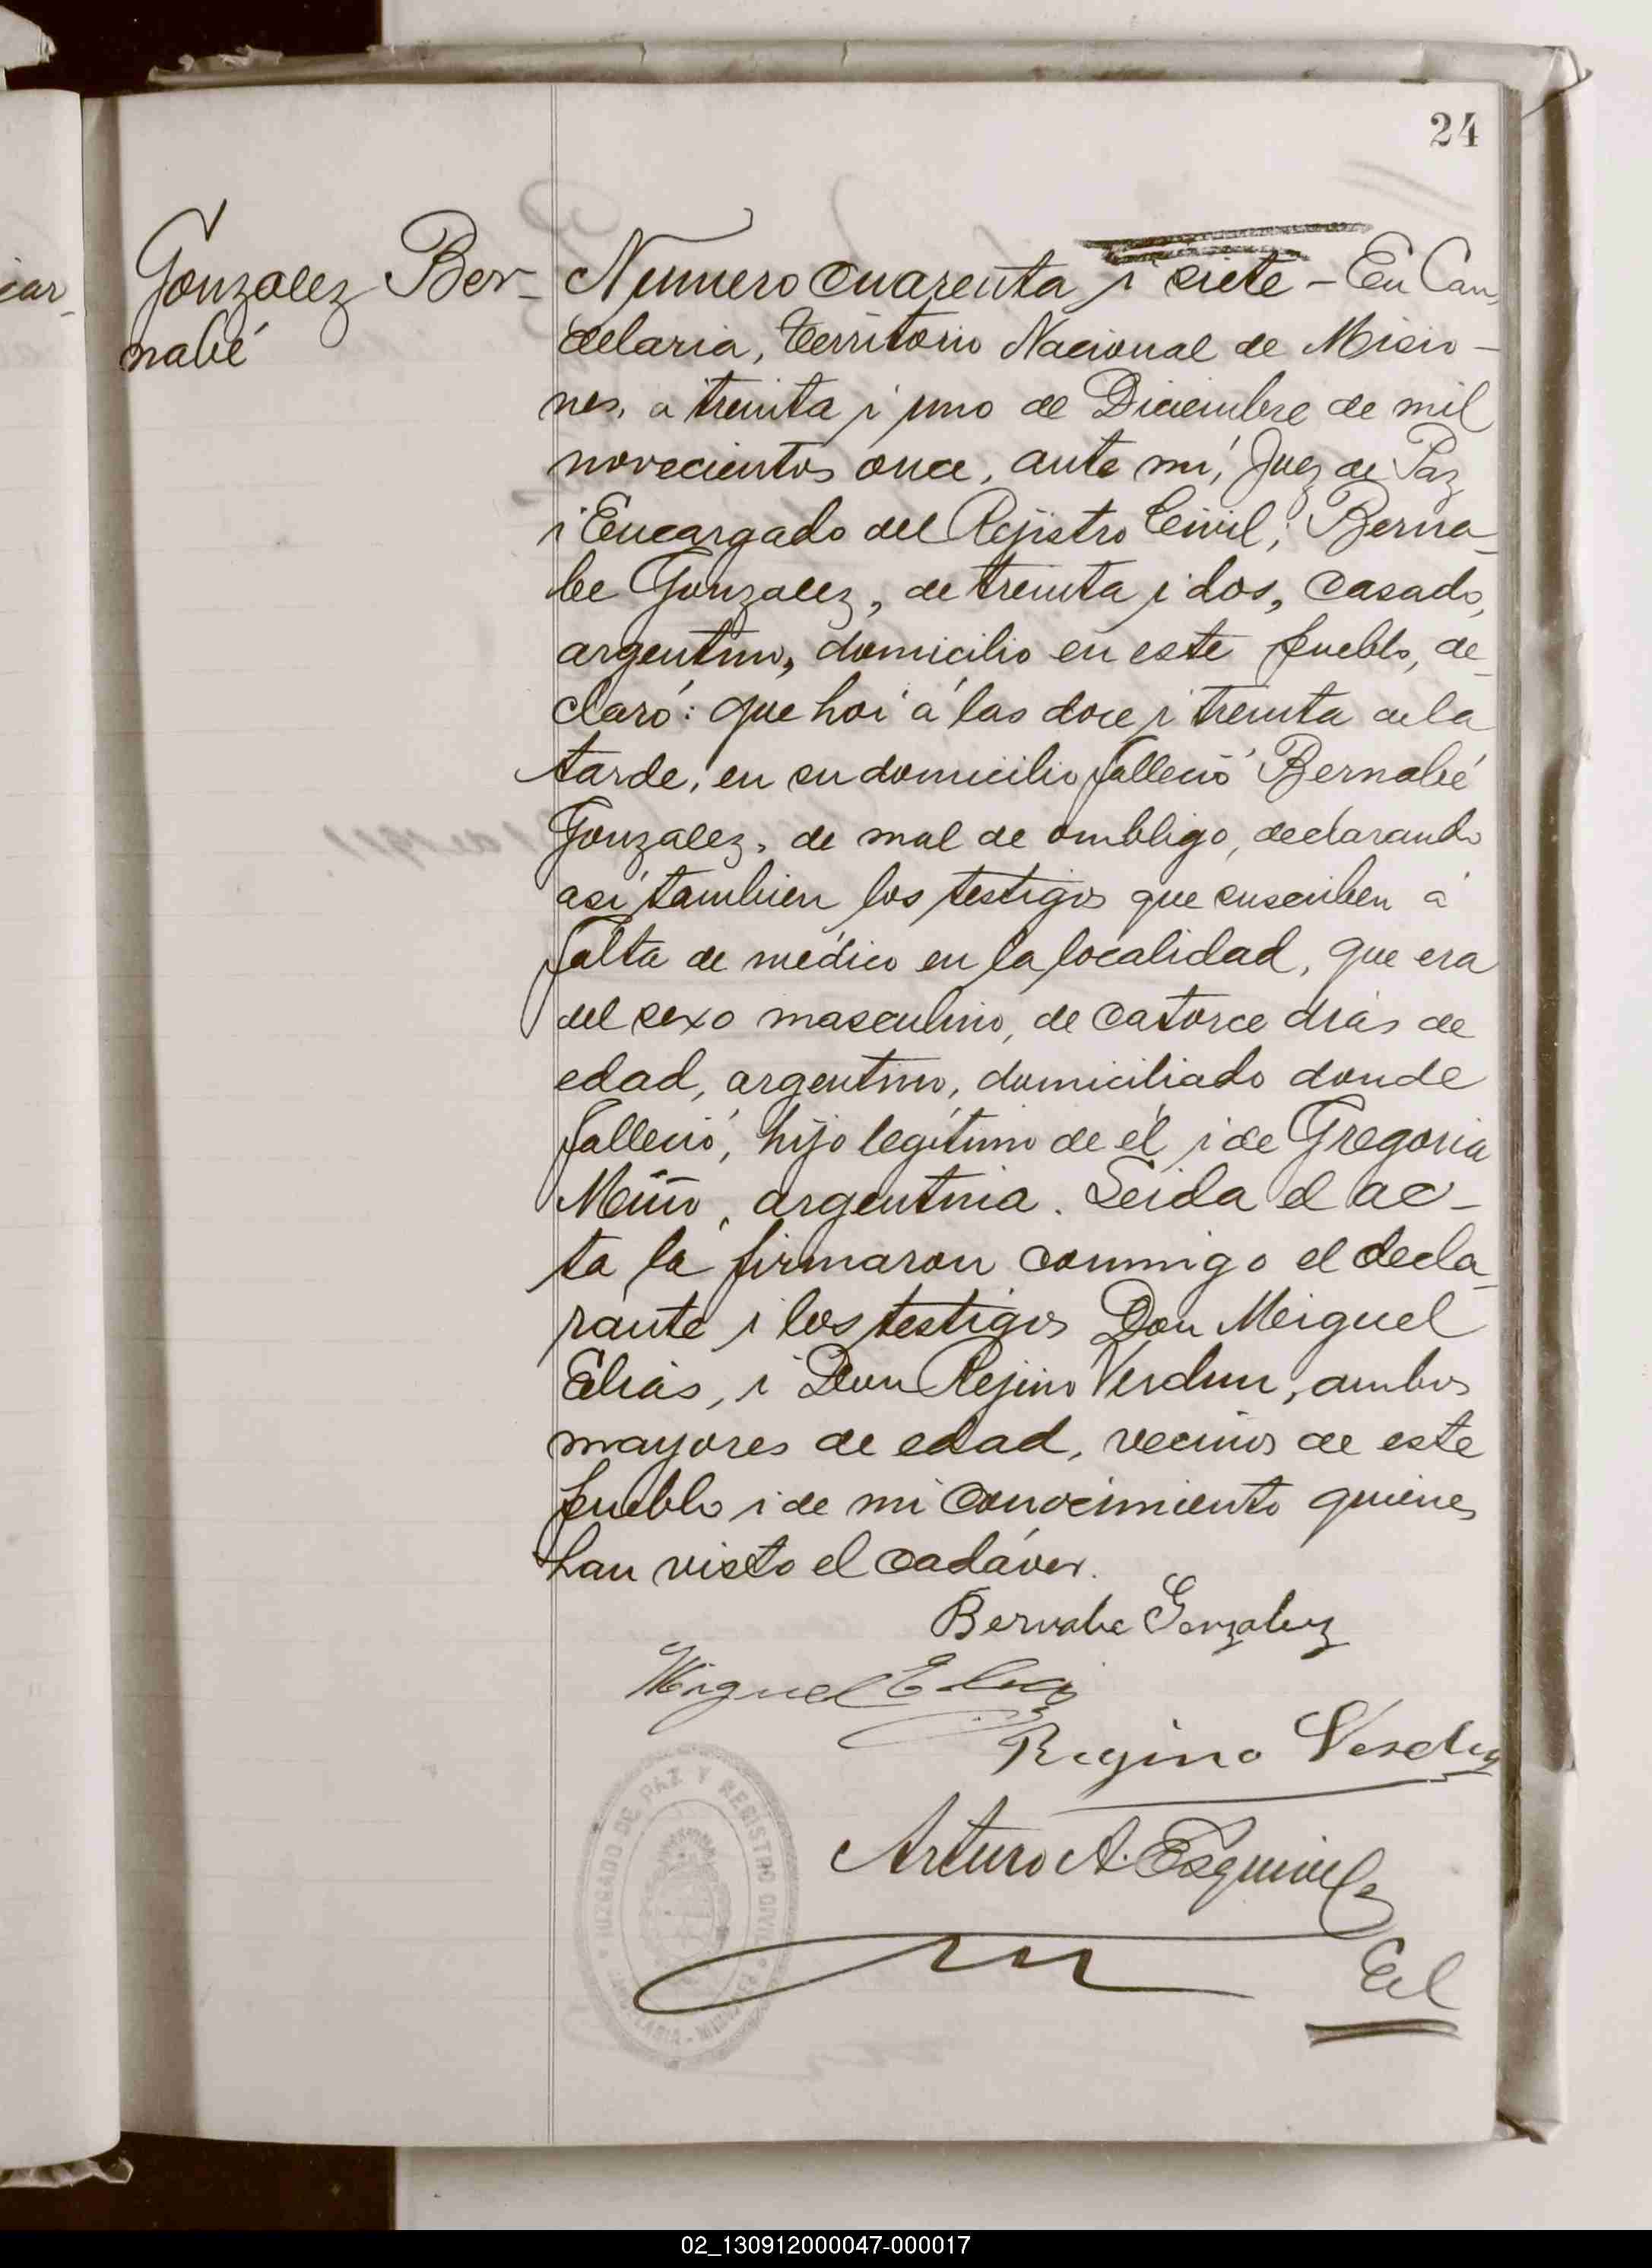 24
Gonzalez Ber-
nabé
Numero cuarenta i siete - En Can-
delaria, Territorio Nacional de Misio-
nes, a treinta i uno de Diciembre de mil
novecientos once, ante mí, Juez de Paz
i Encargado del Rejistro Civil; Berna-
be Gonzalez, de treinta i dos, casado,
argentino, domicilio en este pueblo, de-
claró: que hoi á las doce i treinta de la
tarde, en su domicilio falleció Bernabé
Gonzalez, de mal de ombligo, declarando
así tambien los testigos que suscriben á
falta de médico en la localidad, que era
del sexo masculino, de catorce días de
edad, argentino, domiciliado donde
falleció, hijo legítimo de él i de Gregoria
Miño, argentina. Leida el ac-
ta la firmaron conmigo el decla-
rante i los testigos Don Miguel
Elías, i Don Rejino Verdun, ambos
mayores de edad, vecinos de este
pueblo i de mi conocimiento quienes
han visto el cadáver.
Bernabe Gonzalez
Miguel Elias
Regino Verdun
Arturo A. Esquivel
JUZGADO DE PAZ Y REGISTRO CIVIL
CANDELARIA - MISIONES
02_130912000047-000017